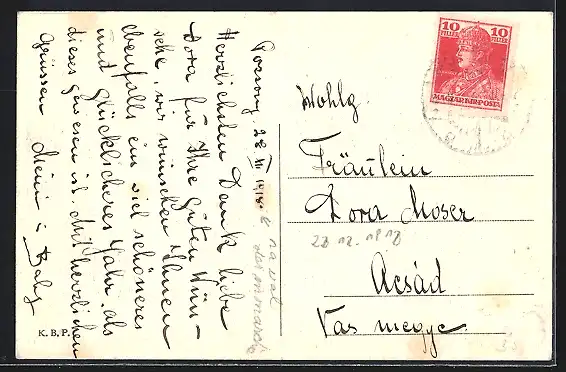 Pozsony, 28. XII. 1918.
Herzlichsten Dank liebe
Dora für Ihre guten Wün-
sche, wir wünschen Ihnen
ebenfalls ein viel schöneres
und glücklicheres Jahr als
dieses gewesen ist. Mit herzlichen
Grüssen
K. B. P.
10 FILLÉR 10 FILLÉR
MAGYAR KIR. POSTA
Wohlg.
Fräulein
Dora Moser
28 12. 1918
Acsád
Vas megye